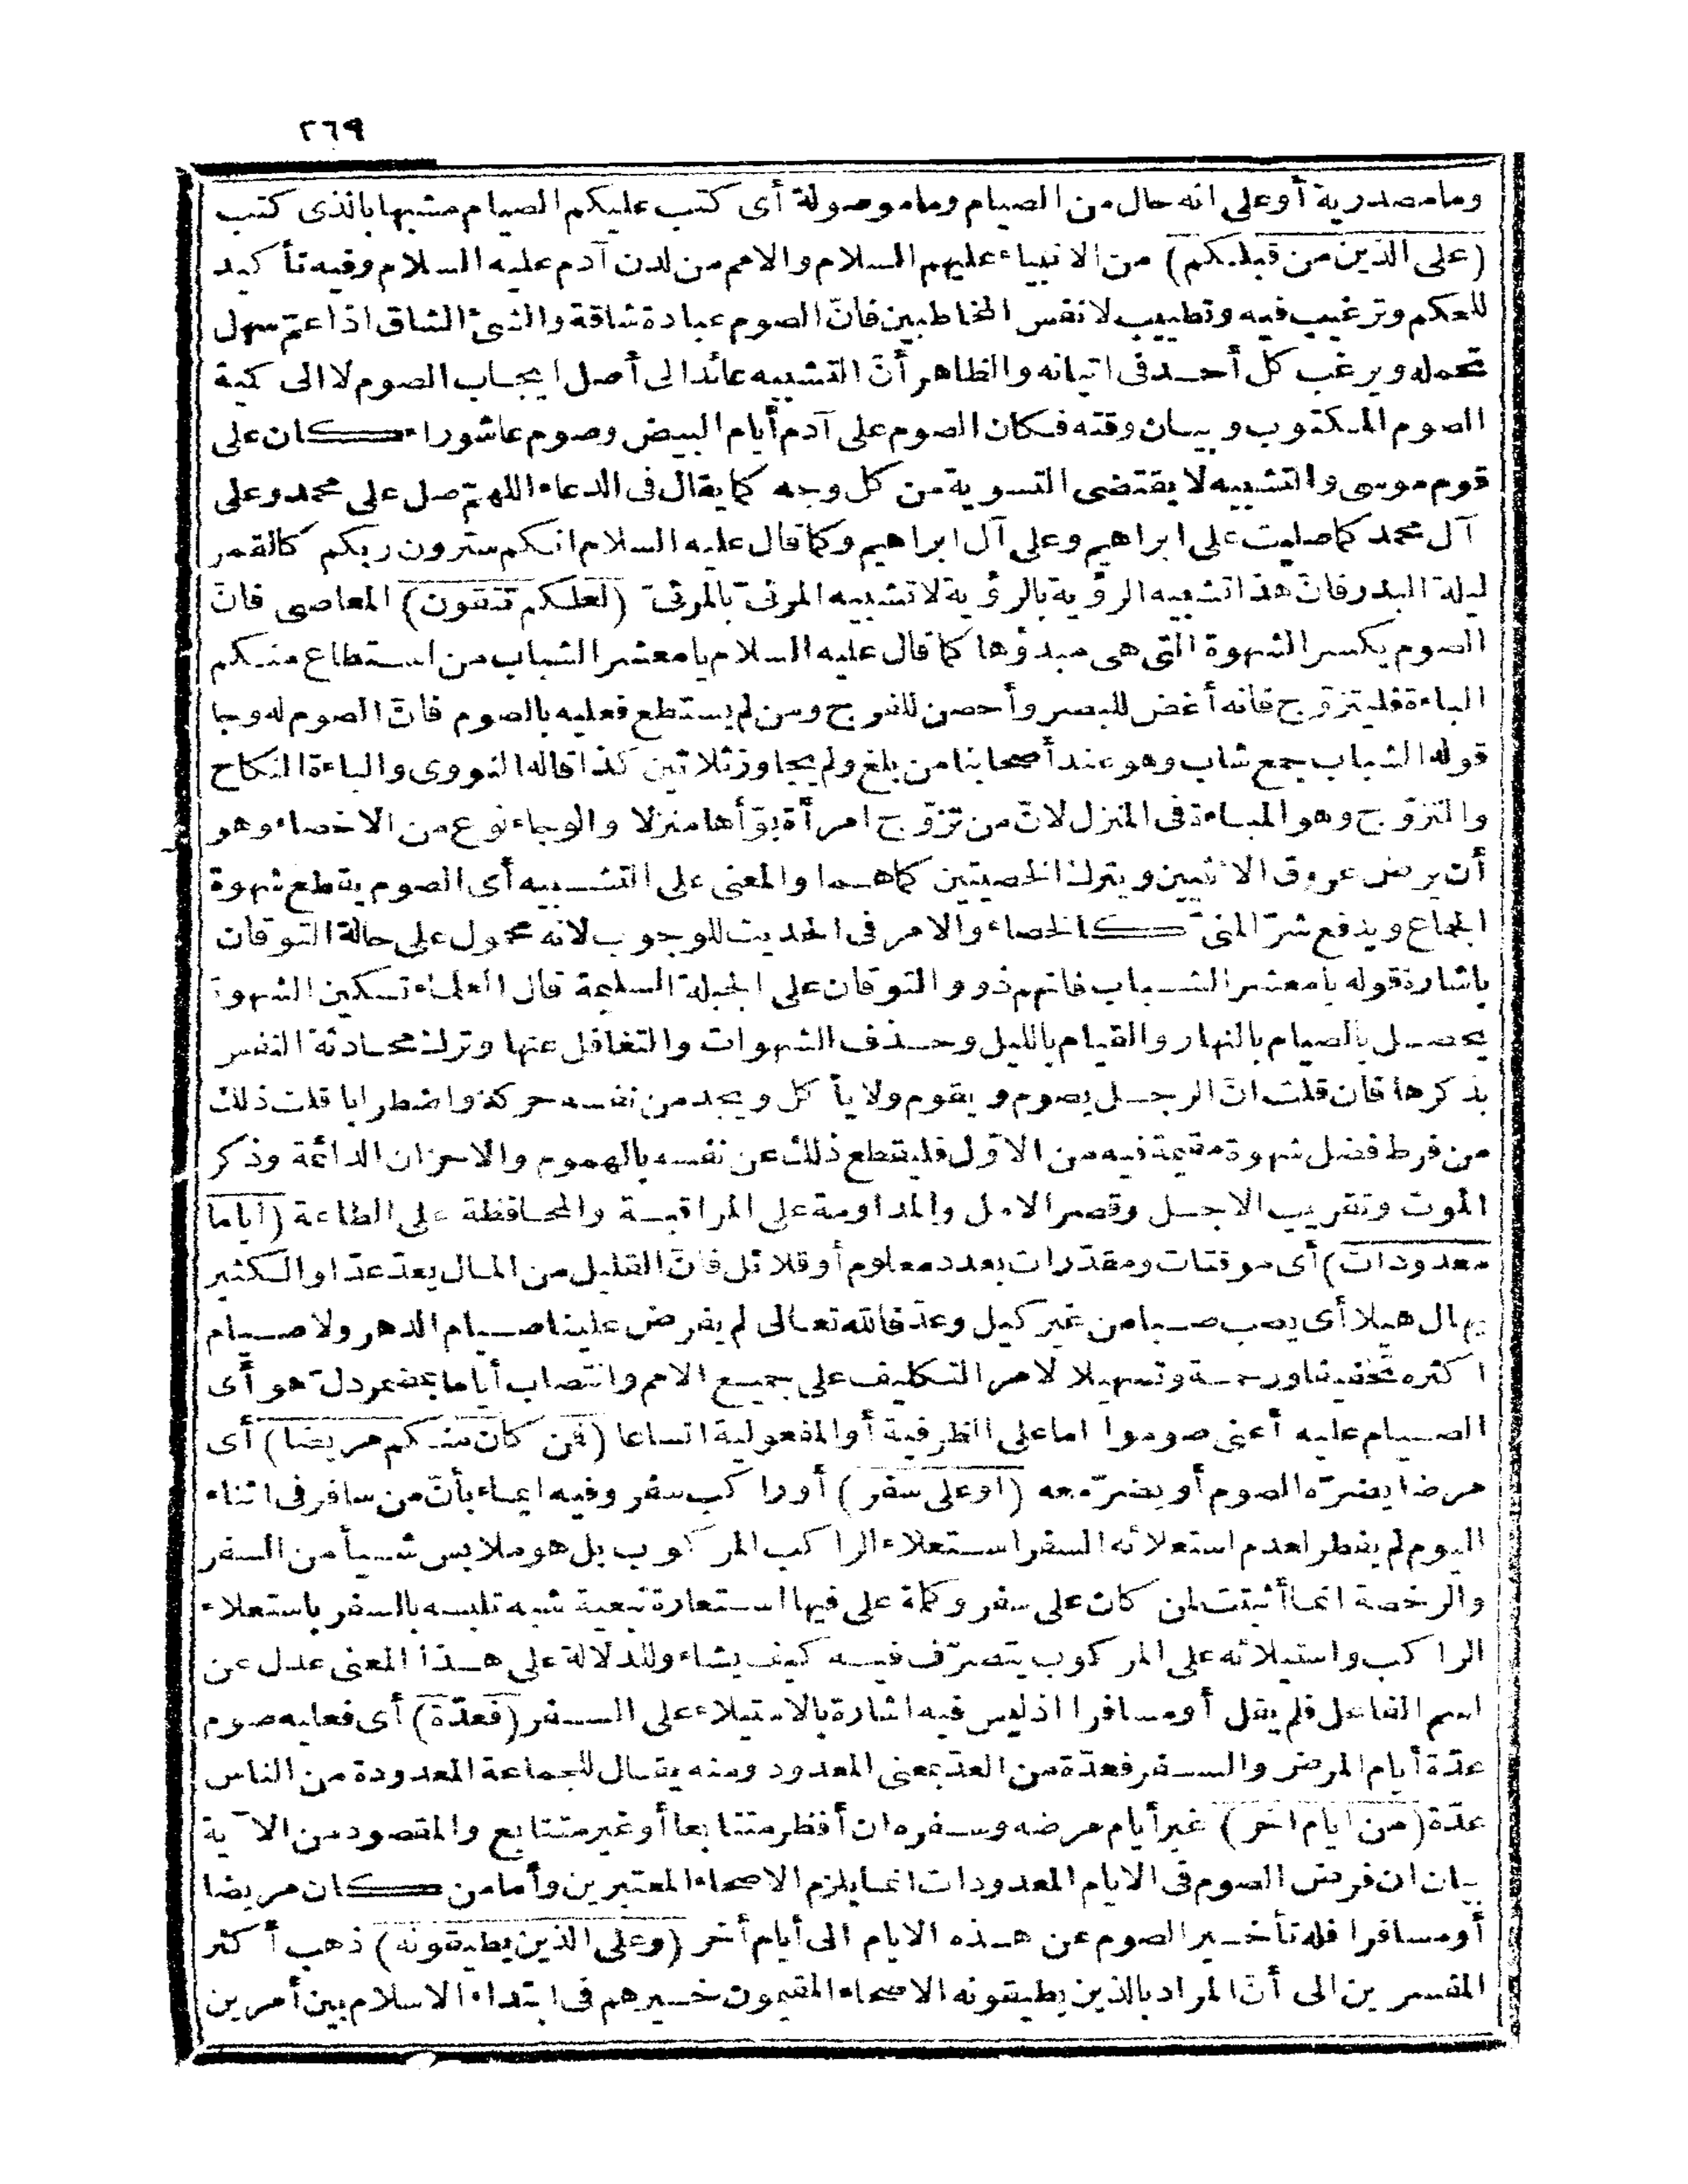 ٢٦٩
وما مصدرية أو على انه حال من الصيام وما موصولة أى كتب عليكم الصيام مشبها بالذى كتب
(على الذين من قبلكم) من الانبياء عليهم السلام والامم من لدن آدم عليه السلام وفيه تأ كيد
للحكم وترغيب فيه وتطييب لانفس المخاطبين فانّ الصوم عبادة شاقة والشئ الشاق اذا عمّ سهل
تحمله ويرغب كل أحد فى اتيانه والظاهر أنّ التشبيه عائد الى أصل ايجاب الصوم لا الى كمية
الصوم المكتوب وبيان وقته فكان الصوم على آدم أيام البيض وصوم عاشوراء كان على
قوم موسى والتشبيه لا يقتضى التسوية من كل وجه كما يقال فى الدعاء اللهمّ صل على محمد وعلى
آل محمد كما صليت على ابراهيم وعلى آل ابراهيم وكما قال عليه السلام انكم سترون ربكم كالقمر
ليلة البدر فانّ هذا تشبيه الرؤية بالرؤية لا تشبيه المرئىّ بالمرئىّ (لعلكم تتقون) المعاصى فانّ
الصوم يكسر الشهوة التى هى مبدؤها كما قال عليه السلام يا معشر الشباب من استطاع منكم
الباءة فليتزوّج فانه أغض للبصر وأحصن للفرج ومن لم يستطع فعليه بالصوم فانّ الصوم له وجا
قوله الشباب جمع شاب وهو عند أصحابنا من بلغ ولم يجاوز ثلاثين كذا قاله النووى والباءة النكاح
والتزوّج وهو المباءة فى المنزل لانّ من تزوّج امرأة بوّأها منزلا والوجاء نوع من الاخصاء وهو
أن يرض عروق الانثيين ويترك الخصيتين كما هما والمعنى على التشبيه أى الصوم يقطع شهوة
الجماع ويدفع شرّ المنىّ كالخصاء والامر فى الحديث للوجوب لانه محمول على حالة التوقان
باشارة قوله يا معشر الشباب فانهم ذوو التوقان على الجبلة السليمة قال العلماء تسكين الشهوة
يحصل بالصيام بالنهار والقيام بالليل وحذف الشهوات والتغافل عنها وترك محادثة النفس
بذكرها فان قلت انّ الرجل يصوم ويقوم ولا يأ كل ويجد من نفسه حركة واضطرابا قلت ذلك
من فرط فضل شهوة مقيمة فيه من الاوّل فليقطع ذلك عن نفسه بالهموم والاحزان الدائمة وذكر
الموت وتقريب الاجل وقصر الامل والمداومة على المراقبة والمحافظة على الطاعة (اياما
معدودات) أى موقتات ومقدّرات بعدد معلوم أو قلائل فانّ القليل من المال يعدّ عدّا والكثير
يهال هيلا أى يصب صبا من غير كيل وعدّ فالله تعالى لم يفرض علينا صيام الدهر ولا صيام
اكثره تخفيفا ورحمة وتسهيلا لامر التكليف على جميع الامم وانتصاب أياما بمضمر دلّ هو أى
الصيام عليه أعنى صوموا اما على الظرفية أو المفعولية اتساعا (فمن كان منكم مريضا) أى
مرضا يضرّه الصوم أو يضرّ معه (او على سفر) أو راكب سفر وفيه ايماء بأنّ من سافر فى اثناء
اليوم لم يفطر لعدم استعلائه السفر استعلاء الراكب المركوب بل هو ملابس شيأ من السفر
والرخصة انما أثبتت لمن كان على سفر وكلمة على فيها استعارة تبعية شبه تلبسه بالسفر باستعلاء
الراكب واستيلائه على المركوب يتصرّف فيه كيف يشاء وللدلالة على هذا المعنى عدل عن
اسم الفاعل فلم يقل أو مسافرا اذ ليس فيه اشارة بالاستيلاء على السفر (فعدّة) أى فعليه صوم
عدّة أيام المرض والسفر فعدّة من العدّ بمعنى المعدود ومنه يقال للجماعة المعدودة من الناس
عدّة (من ايام اخر) غير أيام مرضه وسفره ان أفطر متتابعا أو غير متتابع والمقصود من الآية
بيان ان فرض الصوم فى الايام المعدودات انما يلزم الاصحاء المعتبرين وأما من كان مريضا
أو مسافرا فله تأخير الصوم عن هذه الايام الى أيام أخر (وعلى الذين يطيقونه) ذهب أكثر
المفسرين الى أنّ المراد بالذين يطيقونه الاصحاء المقيمون خيرهم فى ابتداء الاسلام بين أمرين